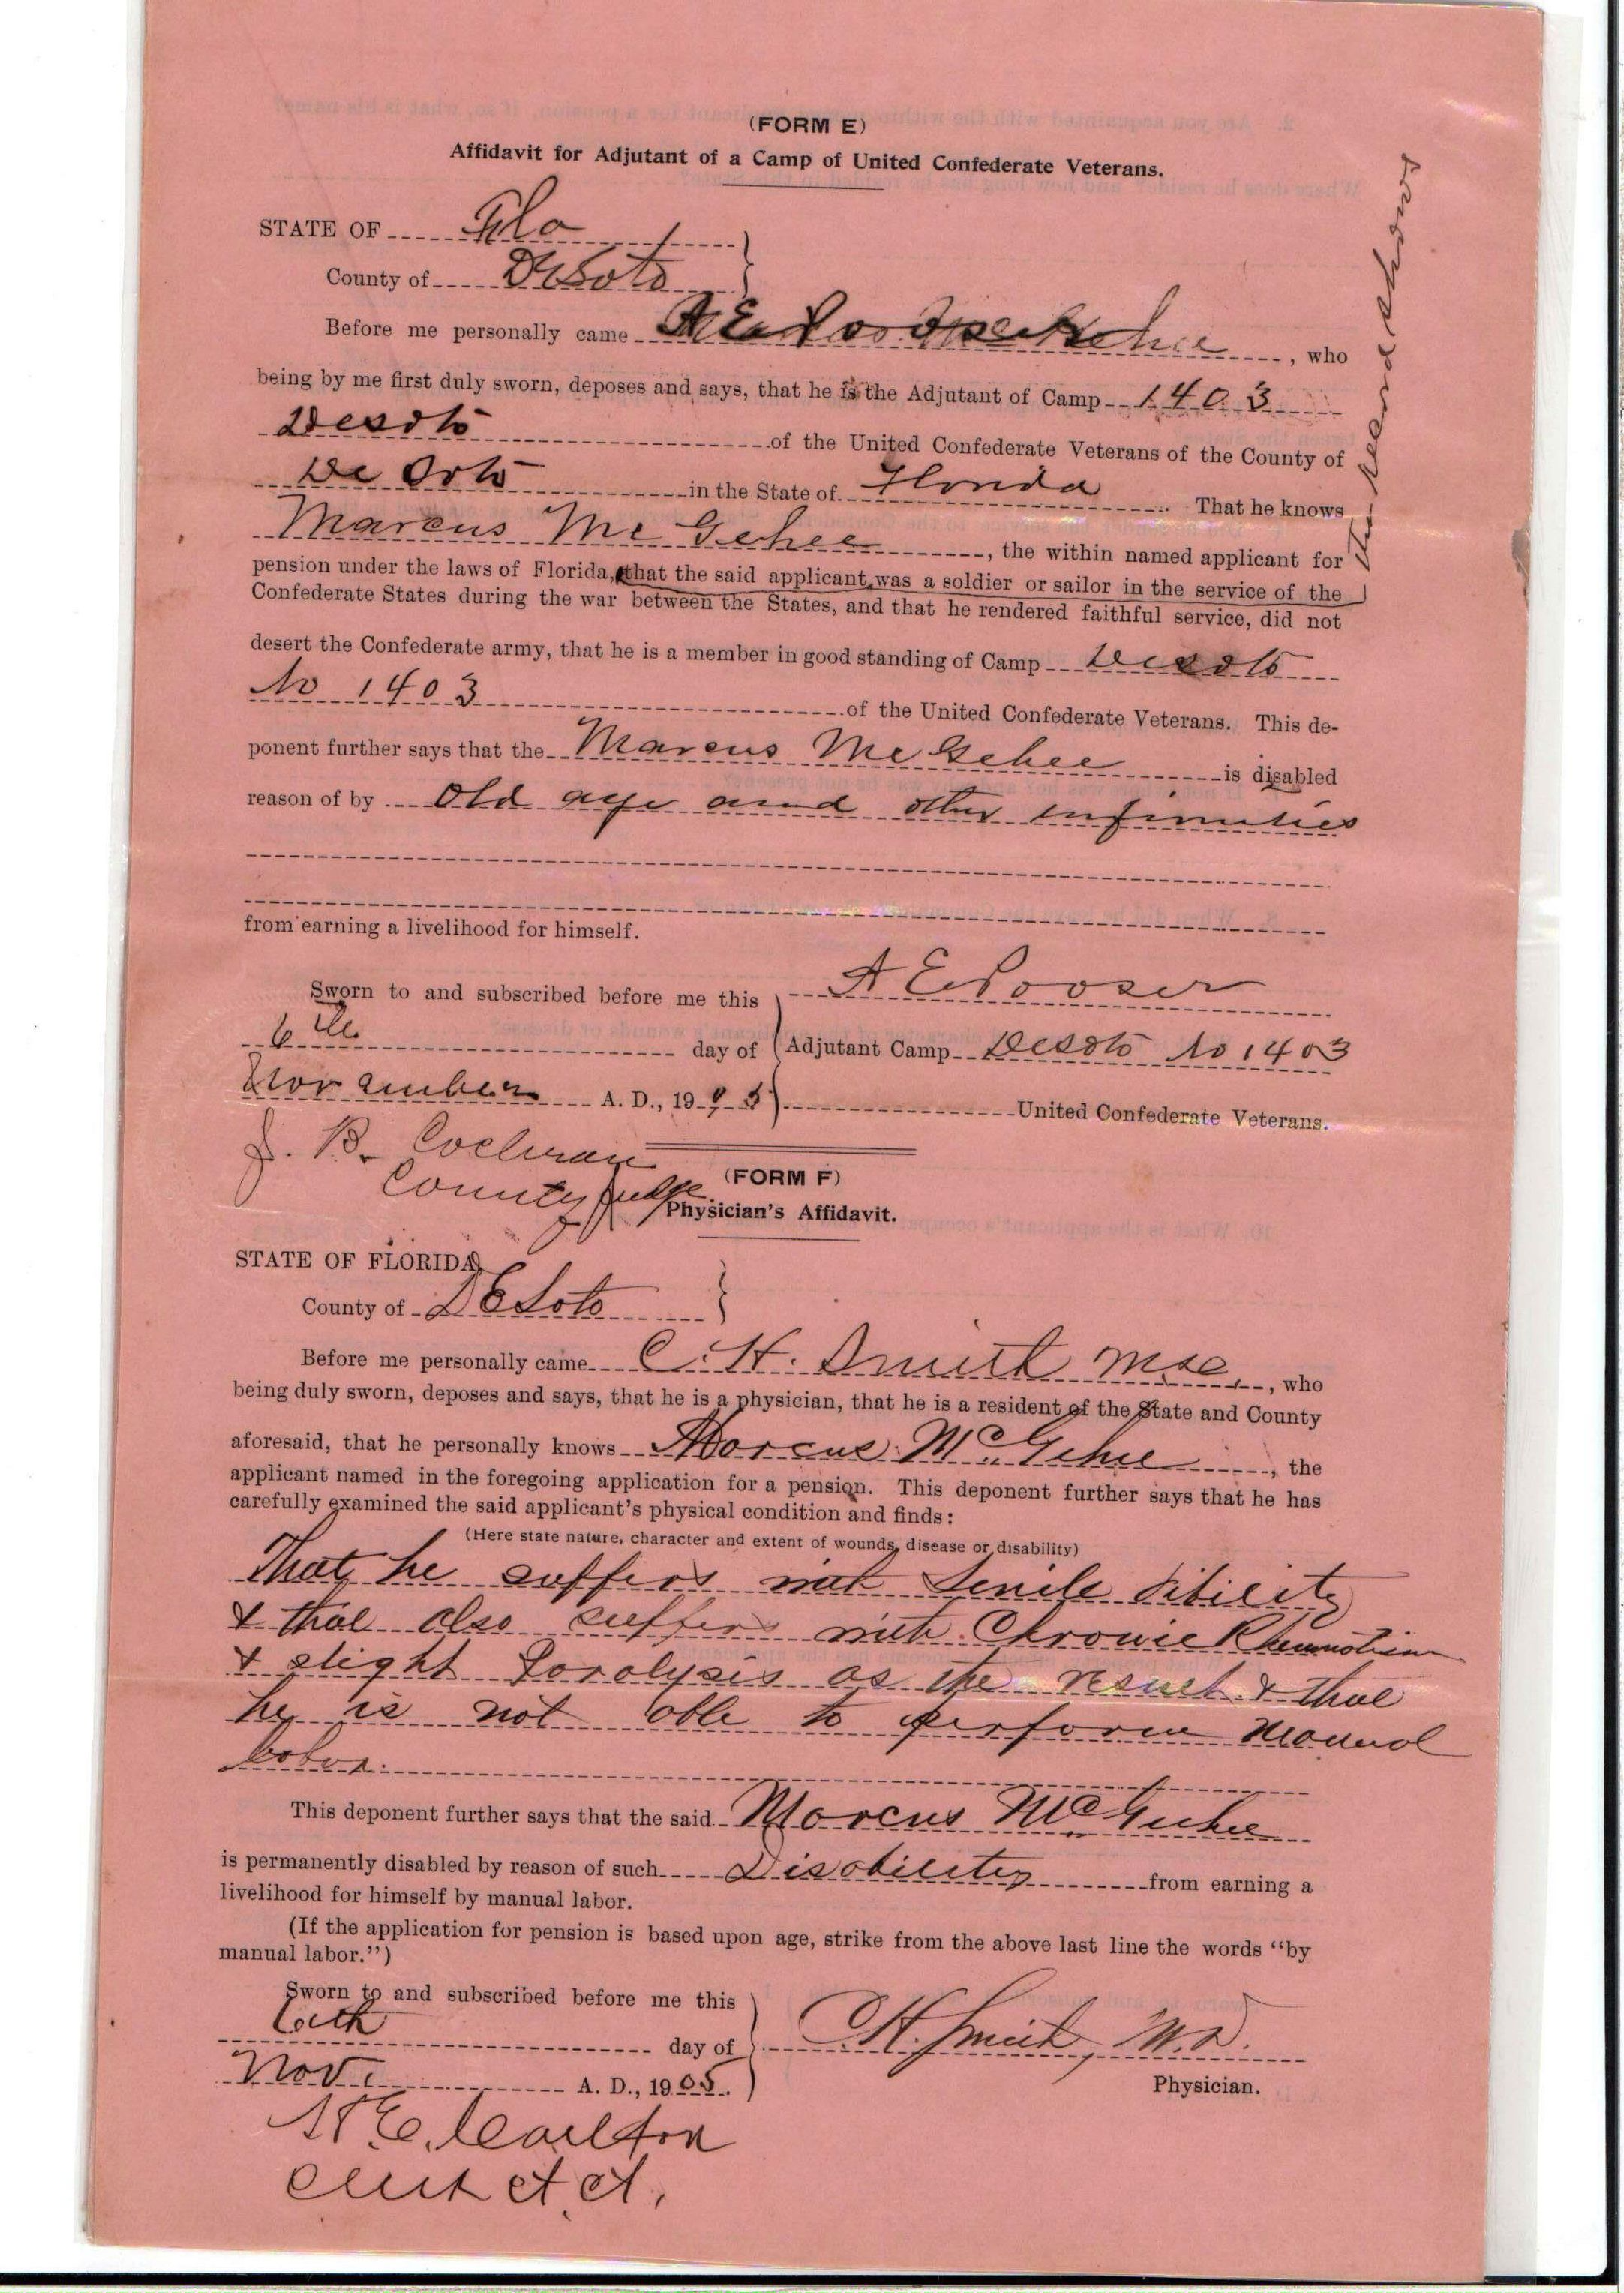 (FORM E)
Affidavit for Adjutant of a Camp of United Confederate Veterans.
STATE OF Fla
County of DeSoto
Before me personally came A E Pooser, who
being by me first duly sworn, deposes and says, that he is the Adjutant of Camp 1403
Desoto of the United Confederate Veterans of the County of
De Soto in the State of Florida. That he knows
Marcus McGehee, the within named applicant for
pension under the laws of Florida, that the said applicant was a soldier or sailor in the service of the
the record shows
Confederate States during the war between the States, and that he rendered faithful service, did not
desert the Confederate army, that he is a member in good standing of Camp Desoto
No 1403 of the United Confederate Veterans. This de-
ponent further says that the Marcus McGehee is disabled
reason of by Old age and other infirmities
from earning a livelihood for himself.
A E Pooser
Sworn to and subscribed before me this
6th day of Adjutant Camp Desoto No 1403
November A. D., 1905 United Confederate Veterans.
J. B. Cochran
County Judge
(FORM F)
Physician's Affidavit.
STATE OF FLORIDA
County of DeSoto
Before me personally came C. H. Smith, who
being duly sworn, deposes and says, that he is a physician, that he is a resident of the State and County
aforesaid, that he personally knows Marcus McGehee, the
applicant named in the foregoing application for a pension. This deponent further says that he has
carefully examined the said applicant's physical condition and finds:
(Here state nature, character and extent of wounds, disease or disability)
That he suffers with Senile Debility
& that also suffers with Chronic Rheumatism
& slight Paralysis as the result & that
he is not able to perform Manual
labor.
This deponent further says that the said Marcus McGehee
is permanently disabled by reason of such Disability from earning a
livelihood for himself by manual labor.
(If the application for pension is based upon age, strike from the above last line the words "by
manual labor.")
Sworn to and subscribed before me this
6th day of C H. Smith, M.D.
Nov. A. D., 1905. Physician.
Carlton
Clerk Ct. Ct.